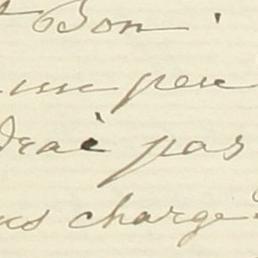 Bon.
un peu
drai pas
us charge